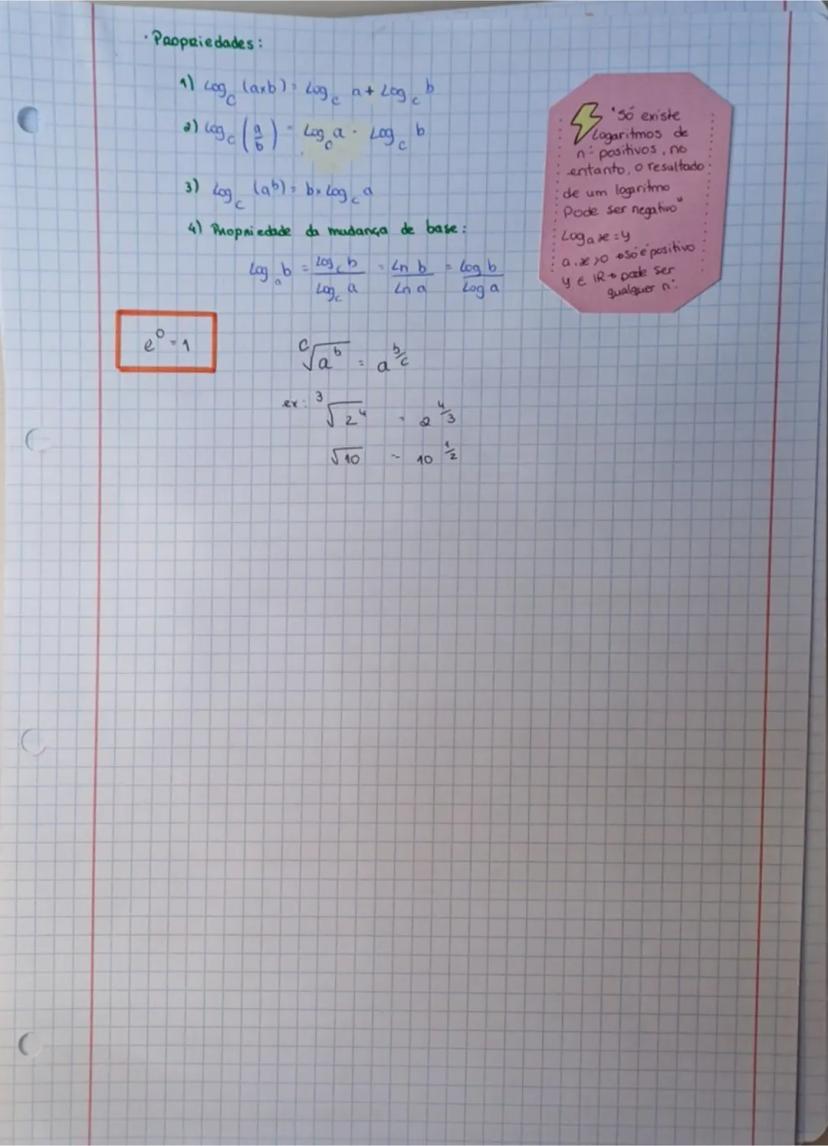 · Propriedades:
1) Log_c (a×b) = Log_c a + Log_c b
2) Log_c (a/b) = Log_c a - Log_c b
3) Log_c (a^b) = b × Log_c a
4) Propriedade da mudança de base:
Log_a b = Log_c b / Log_c a = Ln b / Ln a = Log b / Log a
e^0 = 1
c√(a^b) = a^(b/c)
ex: 3√(2^4) = 2^(4/3)
√10 = 10^(1/2)
"Só existe
Logaritmos de
nº positivos, no
entanto, o resultado
de um logaritmo
Pode ser negativo"
Log_a x = y
a, x > 0 → só é positivo
y ∈ IR → pode ser
qualquer nº